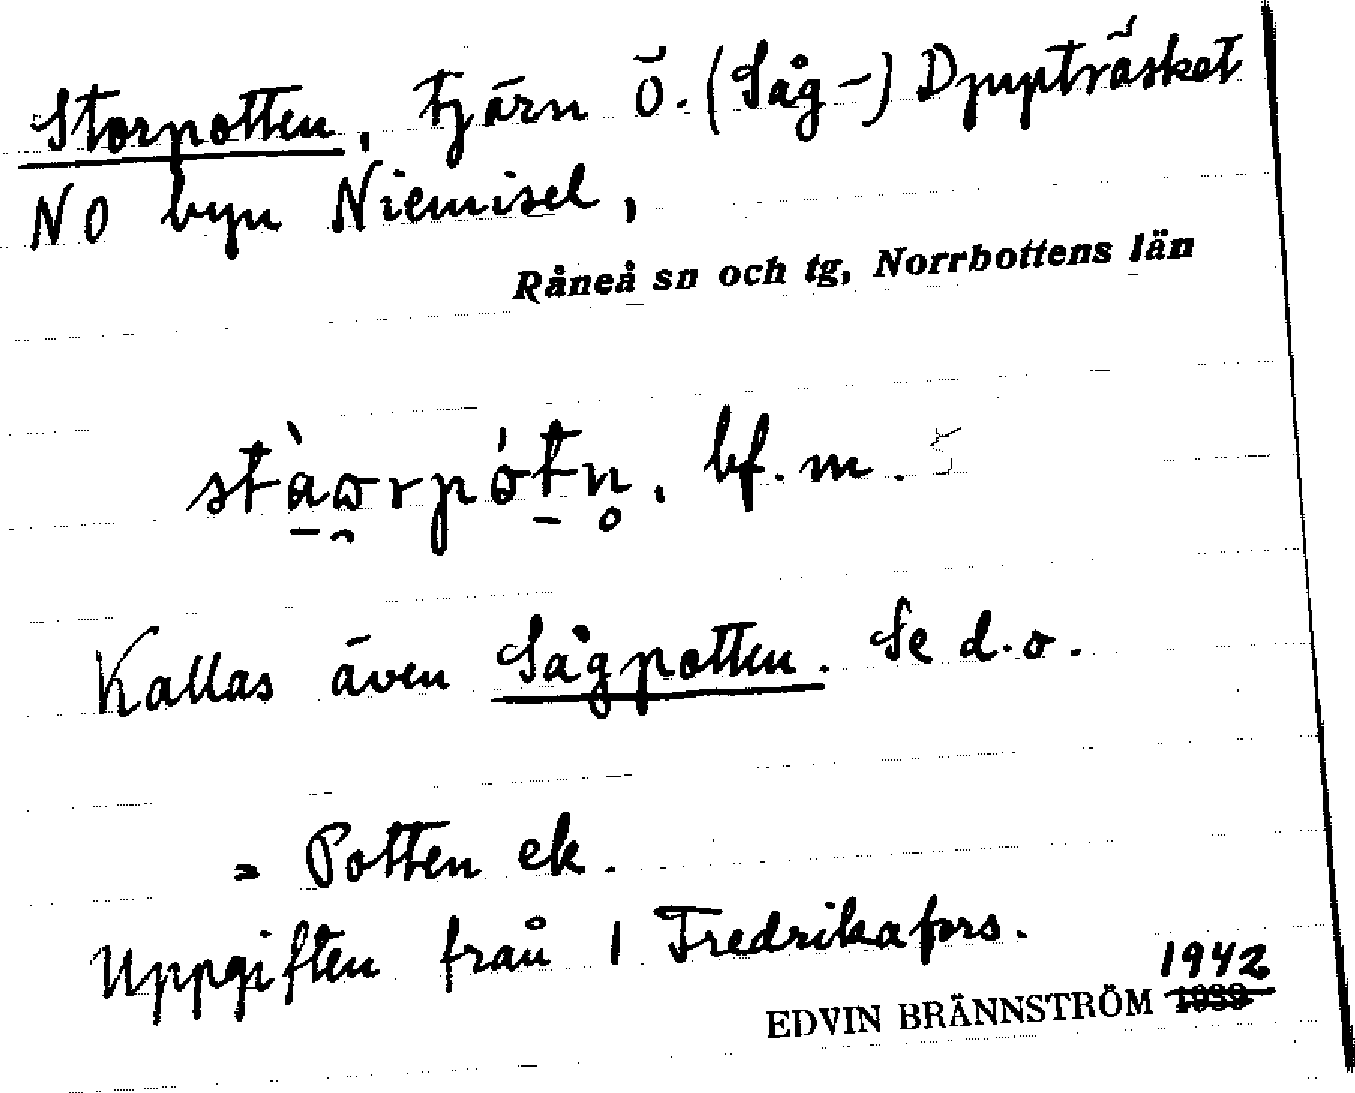 Storpotten, tjärn Ö. (Såg-) Djupträsket
NO byn Niemisel,
Råneå sn och tg, Norrbottens län
bf. m.
Kallas även Sågpotten. Se d. o.
= Potten ek.
Uppgiften från 1 Fredrikafors.
1942
EDVIN BRÄNNSTRÖM 1939